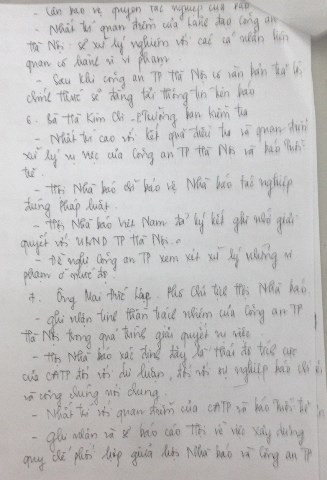 - Cần bảo vệ quyền tác nghiệp của báo
- Nhất trí quan điểm của lãnh đạo Công an
TP Hà Nội sẽ xử lý nghiêm với các cá nhân liên
quan có hành vi vi phạm
- Sau khi công an TP Hà Nội có văn bản trả lời
chính thức sẽ đăng tải thông tin lên báo
6. Bà Hà Kim Chi - P.Trưởng ban kiểm tra
- Nhất trí cao với kết quả điều tra và quan điểm
xử lý vụ việc của Công an TP Hà Nội và báo Tuổi
trẻ.
- Hội Nhà báo để bảo vệ Nhà báo tác nghiệp
đúng pháp luật
- Hội Nhà báo Việt Nam đã ký kết ghi nhớ giải
quyết với UBND TP Hà Nội.
- Đề nghị Công an TP xem xét xử lý những vi
phạm ở mức độ
7. Ông Mai Đức Lộc. Phó Chủ tịch Hội Nhà báo
- ghi nhận tinh thần trách nhiệm của Công an TP
Hà Nội trong quá trình giải quyết vụ việc.
- Hội Nhà báo xác định đây là thái độ tích cực
của CATP đối với dư luận, đối với sự nghiệp báo chí
và công chúng nói chung.
- Nhất trí với quan điểm của CATP và báo Tuổi trẻ
- ghi nhận và sẽ báo cáo Hội về việc xây dựng
quy chế phối hợp giữa hội Nhà báo và Công an TP